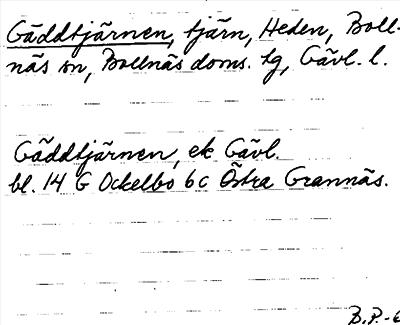 Gäddtjärnen, tjärn, Heden, Boll-
näs sn, Bollnäs doms. tg, Gävl. l.
Gäddtjärnen, ek Gävl.
bl. 14 G Ockelbo 6c Östra Grannäs.
B.P.-6